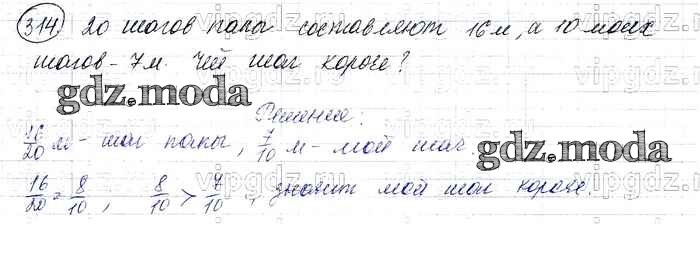 314. 20 шагов папы составляют 16 м, а 10 моих
шагов - 7 м. Чей шаг короче?
gdz.moda
Решение:
16/20 м - шаг папы, 7/10 м - мой шаг.
gdz.moda
16/20 = 8/10, 8/10 > 7/10, значит мой шаг короче.